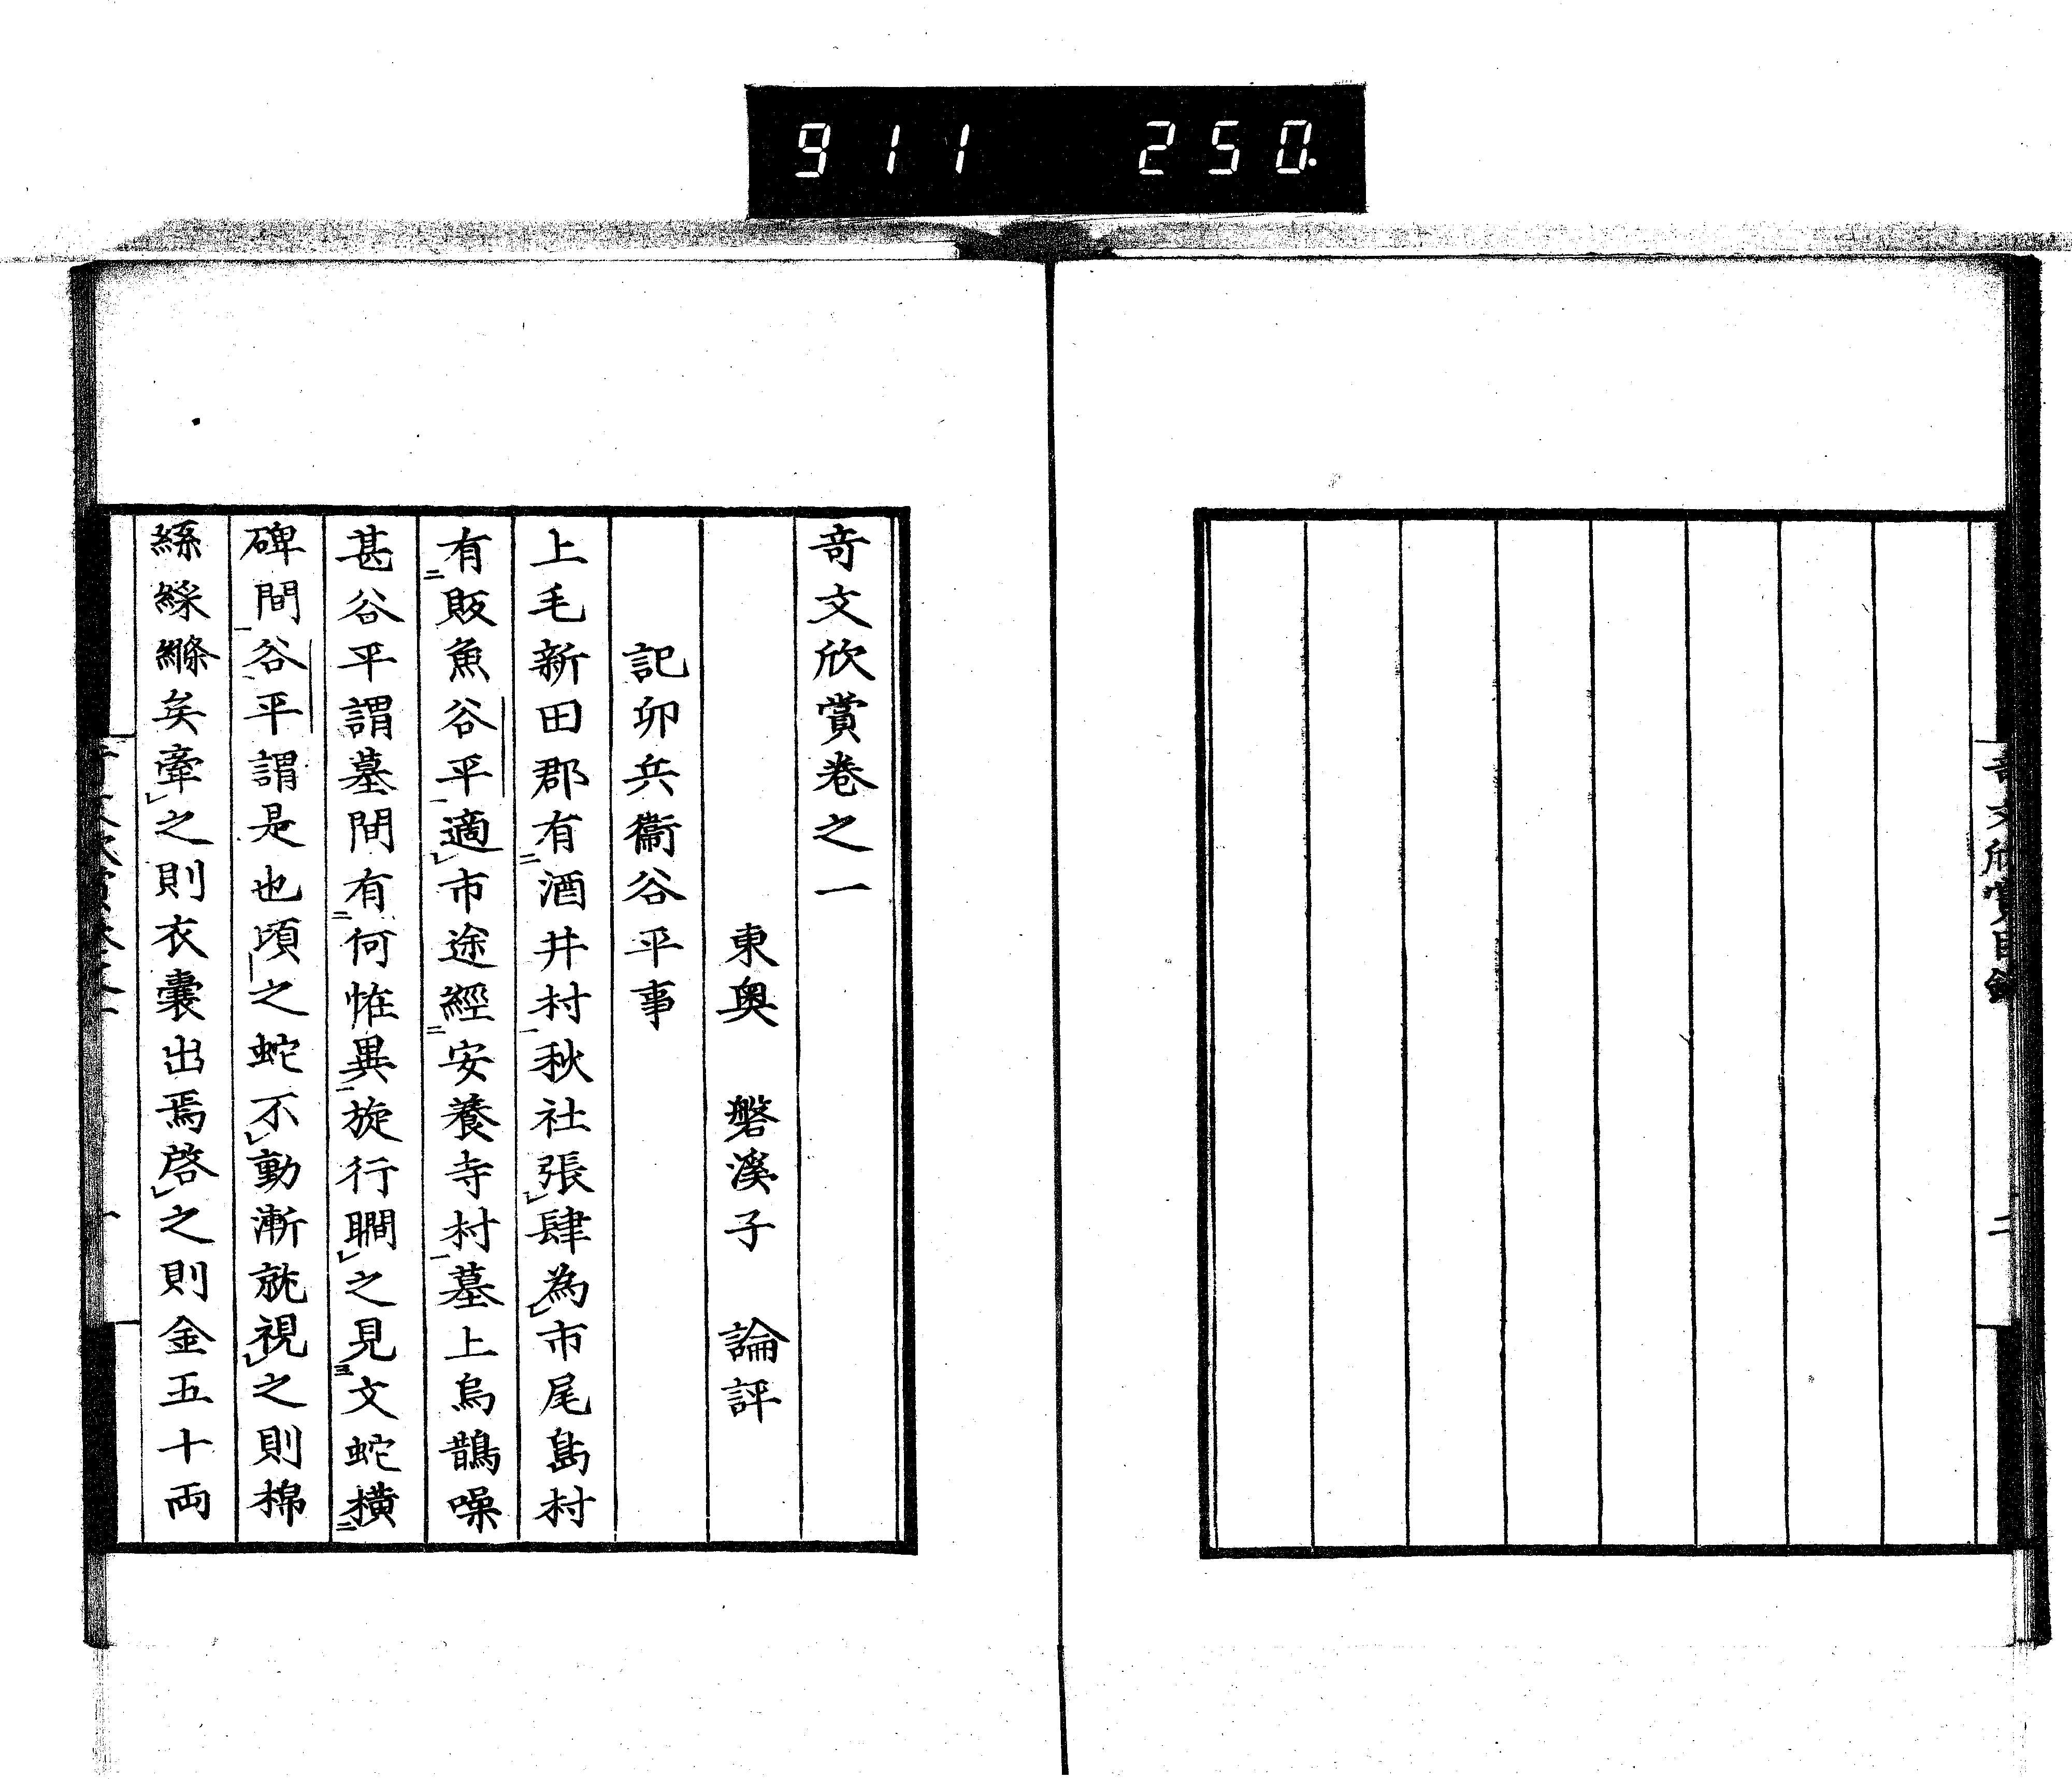 911 250.
奇文欣賞目錄 二
奇文欣賞卷之一
東奧 磐溪子 論評
記卯兵衞谷平事
上毛新田郡有酒井村秋社張肆為市尾島村
有販魚谷平適市途經安養寺村墓上烏鵲噪
甚谷平謂墓間有何恠異旋行瞷之見文蛇橫
碑間谷平謂是也頃之蛇不動漸就視之則棉
絲綵縧矣牽之則衣囊出焉啓之則金五十両